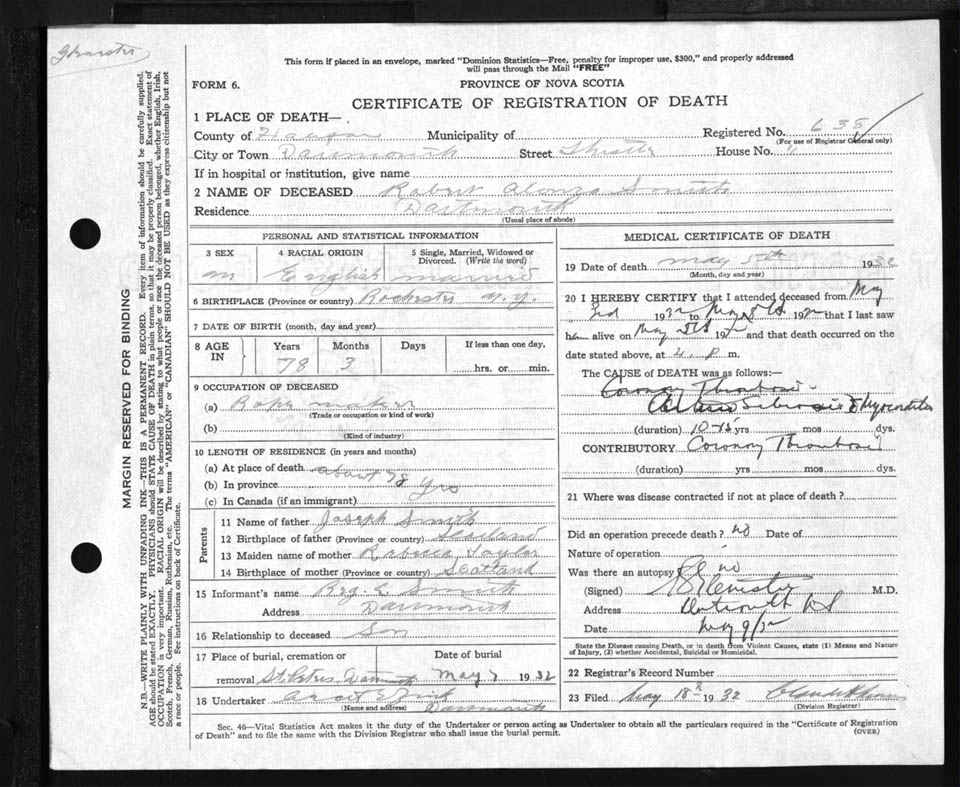 This form if placed in an envelope, marked "Dominion Statistics—Free, penalty for improper use, $300," and properly addressed
will pass through the Mail "FREE"
FORM 6.
PROVINCE OF NOVA SCOTIA
CERTIFICATE OF REGISTRATION OF DEATH
1 PLACE OF DEATH—
County of Municipality of Registered No. 638
(For use of Registrar General only)
City or Town Dartmouth Street House No.
If in hospital or institution, give name
2 NAME OF DECEASED Robert Alonzo Smith
Residence Dartmouth
(Usual place of abode)
PERSONAL AND STATISTICAL INFORMATION
3 SEX 4 RACIAL ORIGIN 5 Single, Married, Widowed or
Divorced. (Write the word)
m English married
6 BIRTHPLACE (Province or country) Rochester N.Y.
7 DATE OF BIRTH (month, day and year)
8 AGE IN Years Months Days If less than one day,
78 3 hrs. or min.
9 OCCUPATION OF DECEASED
(a) Rope maker
(Trade or occupation or kind of work)
(b)
(Kind of industry)
10 LENGTH OF RESIDENCE (in years and months)
(a) At place of death about 78
(b) In province Yrs
(c) In Canada (if an immigrant)
Parents
11 Name of father Joseph Smith
12 Birthplace of father (Province or country) Scotland
13 Maiden name of mother Rebecca Taylor
14 Birthplace of mother (Province or country) Scotland
15 Informant's name Reg. E. Smith
Address Dartmouth
16 Relationship to deceased Son
17 Place of burial, cremation or Date of burial
removal St. Peters Dartmouth May 7 1932
18 Undertaker
(Name and address) Dartmouth
MEDICAL CERTIFICATE OF DEATH
19 Date of death May 5th 1932
(Month, day and year)
20 I HEREBY CERTIFY that I attended deceased from May
3rd 1932 to May 5th 1932 that I last saw
him alive on May 5th 1932 and that death occurred on the
date stated above, at 4. P. m.
The CAUSE of DEATH was as follows:—
Coronary Thrombosis
Arterio Sclerosis & Myocarditis
(duration) 10-15 yrs mos dys.
CONTRIBUTORY Coronary Thrombosis
(duration) yrs mos dys.
21 Where was disease contracted if not at place of death?
Did an operation precede death? no Date of
Nature of operation
Was there an autopsy? no
(Signed) M.D.
Address Dartmouth NS
Date May 9/32
State the Disease causing Death, or in death from Violent Causes, state (1) Means and Nature
of Injury, (2) whether Accidental, Suicidal or Homicidal.
22 Registrar's Record Number
23 Filed May 18 1932
(Division Registrar)
Sec. 46—Vital Statistics Act makes it the duty of the Undertaker or person acting as Undertaker to obtain all the particulars required in the "Certificate of Registration
of Death" and to file the same with the Division Registrar who shall issue the burial permit.
(OVER)
MARGIN RESERVED FOR BINDING
N.B.—WRITE PLAINLY WITH UNFADING INK—THIS IS A PERMANENT RECORD. Every item of information should be carefully supplied.
AGE should be stated EXACTLY. PHYSICIANS should STATE CAUSE OF DEATH in plain terms, so that it may be properly classified. Exact statement of
OCCUPATION is very important. RACIAL ORIGIN will be described by stating to what people or race the deceased person belonged, whether English, Irish,
Scotch, French, German, Russian, Ruthenian, etc. The terms "AMERICAN" or "CANADIAN" SHOULD NOT BE USED as they express citizenship but not
a race or people. See instructions on back of Certificate.